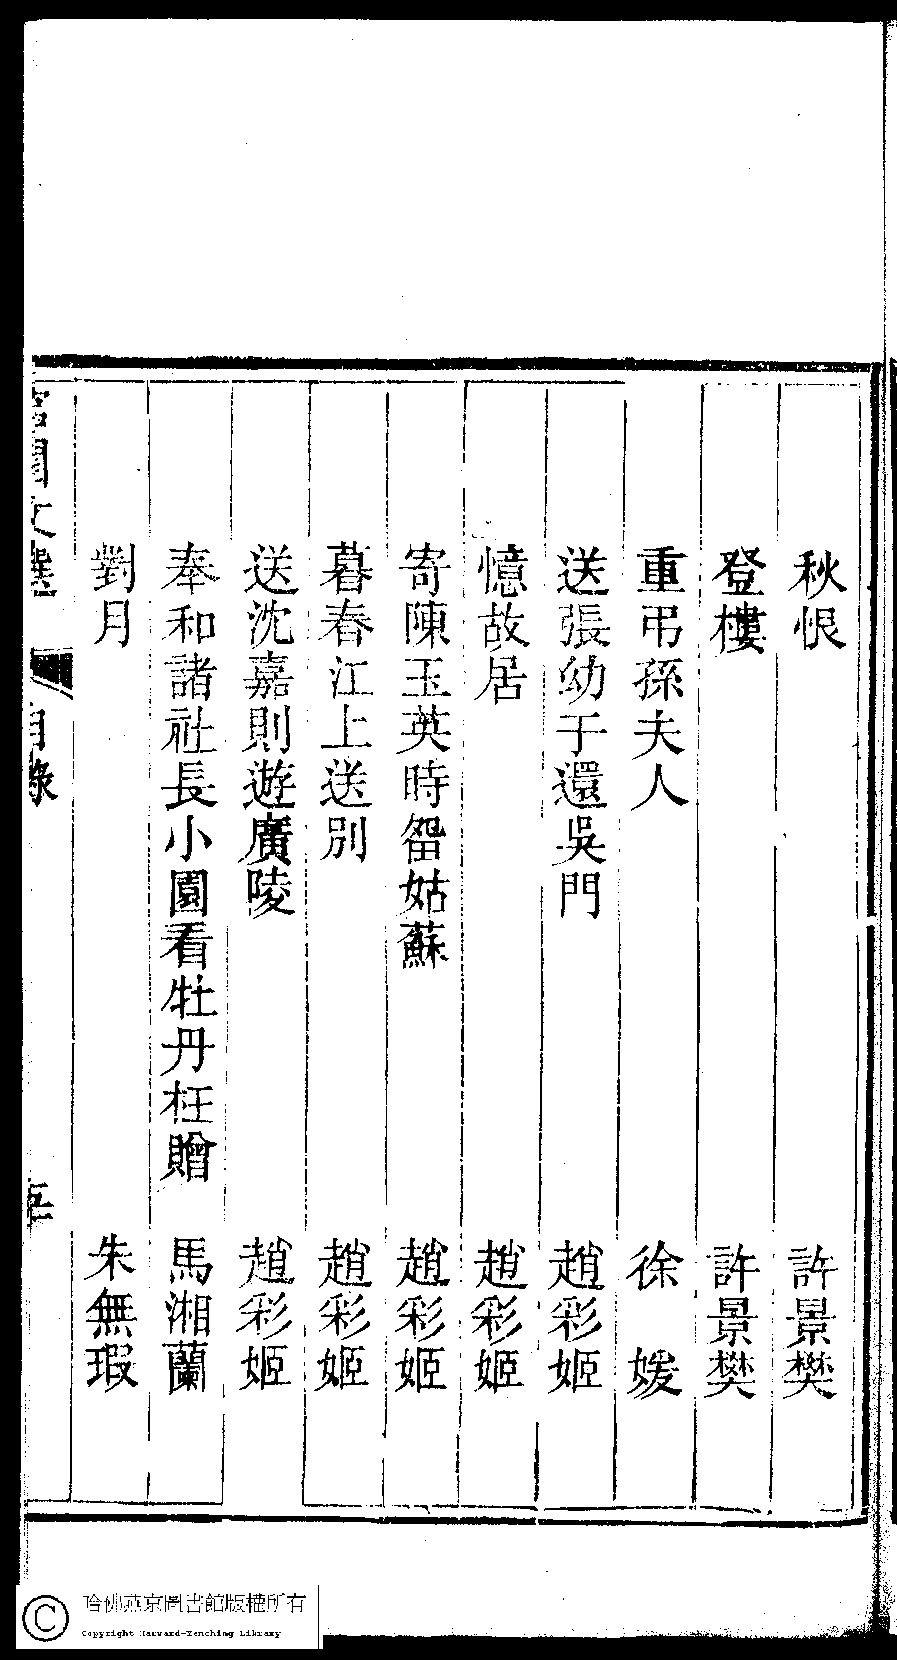 秋恨 許景樊
登樓 許景樊
重弔孫夫人 徐媛
送張幼于還吳門 趙彩姬
憶故居 趙彩姬
寄陳玉英時畱姑蘇 趙彩姬
暮春江上送別 趙彩姬
送沈嘉則遊廣陵 趙彩姬
奉和諸社長小園看牡丹枉贈 馬湘蘭
對月 朱無瑕
宮閨文選 目錄
哈佛燕京圖書館版權所有
Copyright Harvard-Yenching Library